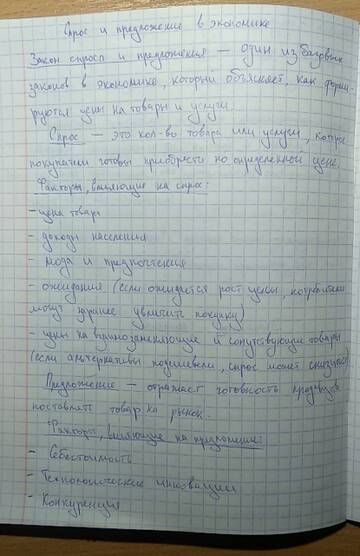 Спрос и предложение в экономике
Закон спроса и предложения — один из базовых
законов в экономике, который объясняет, как форми-
руются цены на товары и услуги.
Спрос — это кол-во товара или услуги, которое
покупатели готовы приобрести по определенной цене.
Факторы, влияющие на спрос:
- цена товара
- доходы населения
- мода и предпочтения
- ожидания (если ожидается рост цены, потребители
могут заранее увеличить покупку)
- цены на взаимозаменяющие и сопутствующие товары
(если альтернативы подешевели, спрос может снизиться)
Предложение — отражает готовность продавцов
поставлять товар на рынок.
Факторы, влияющие на предложение:
- Себестоимость
- Технологические инновации
- Конкуренция